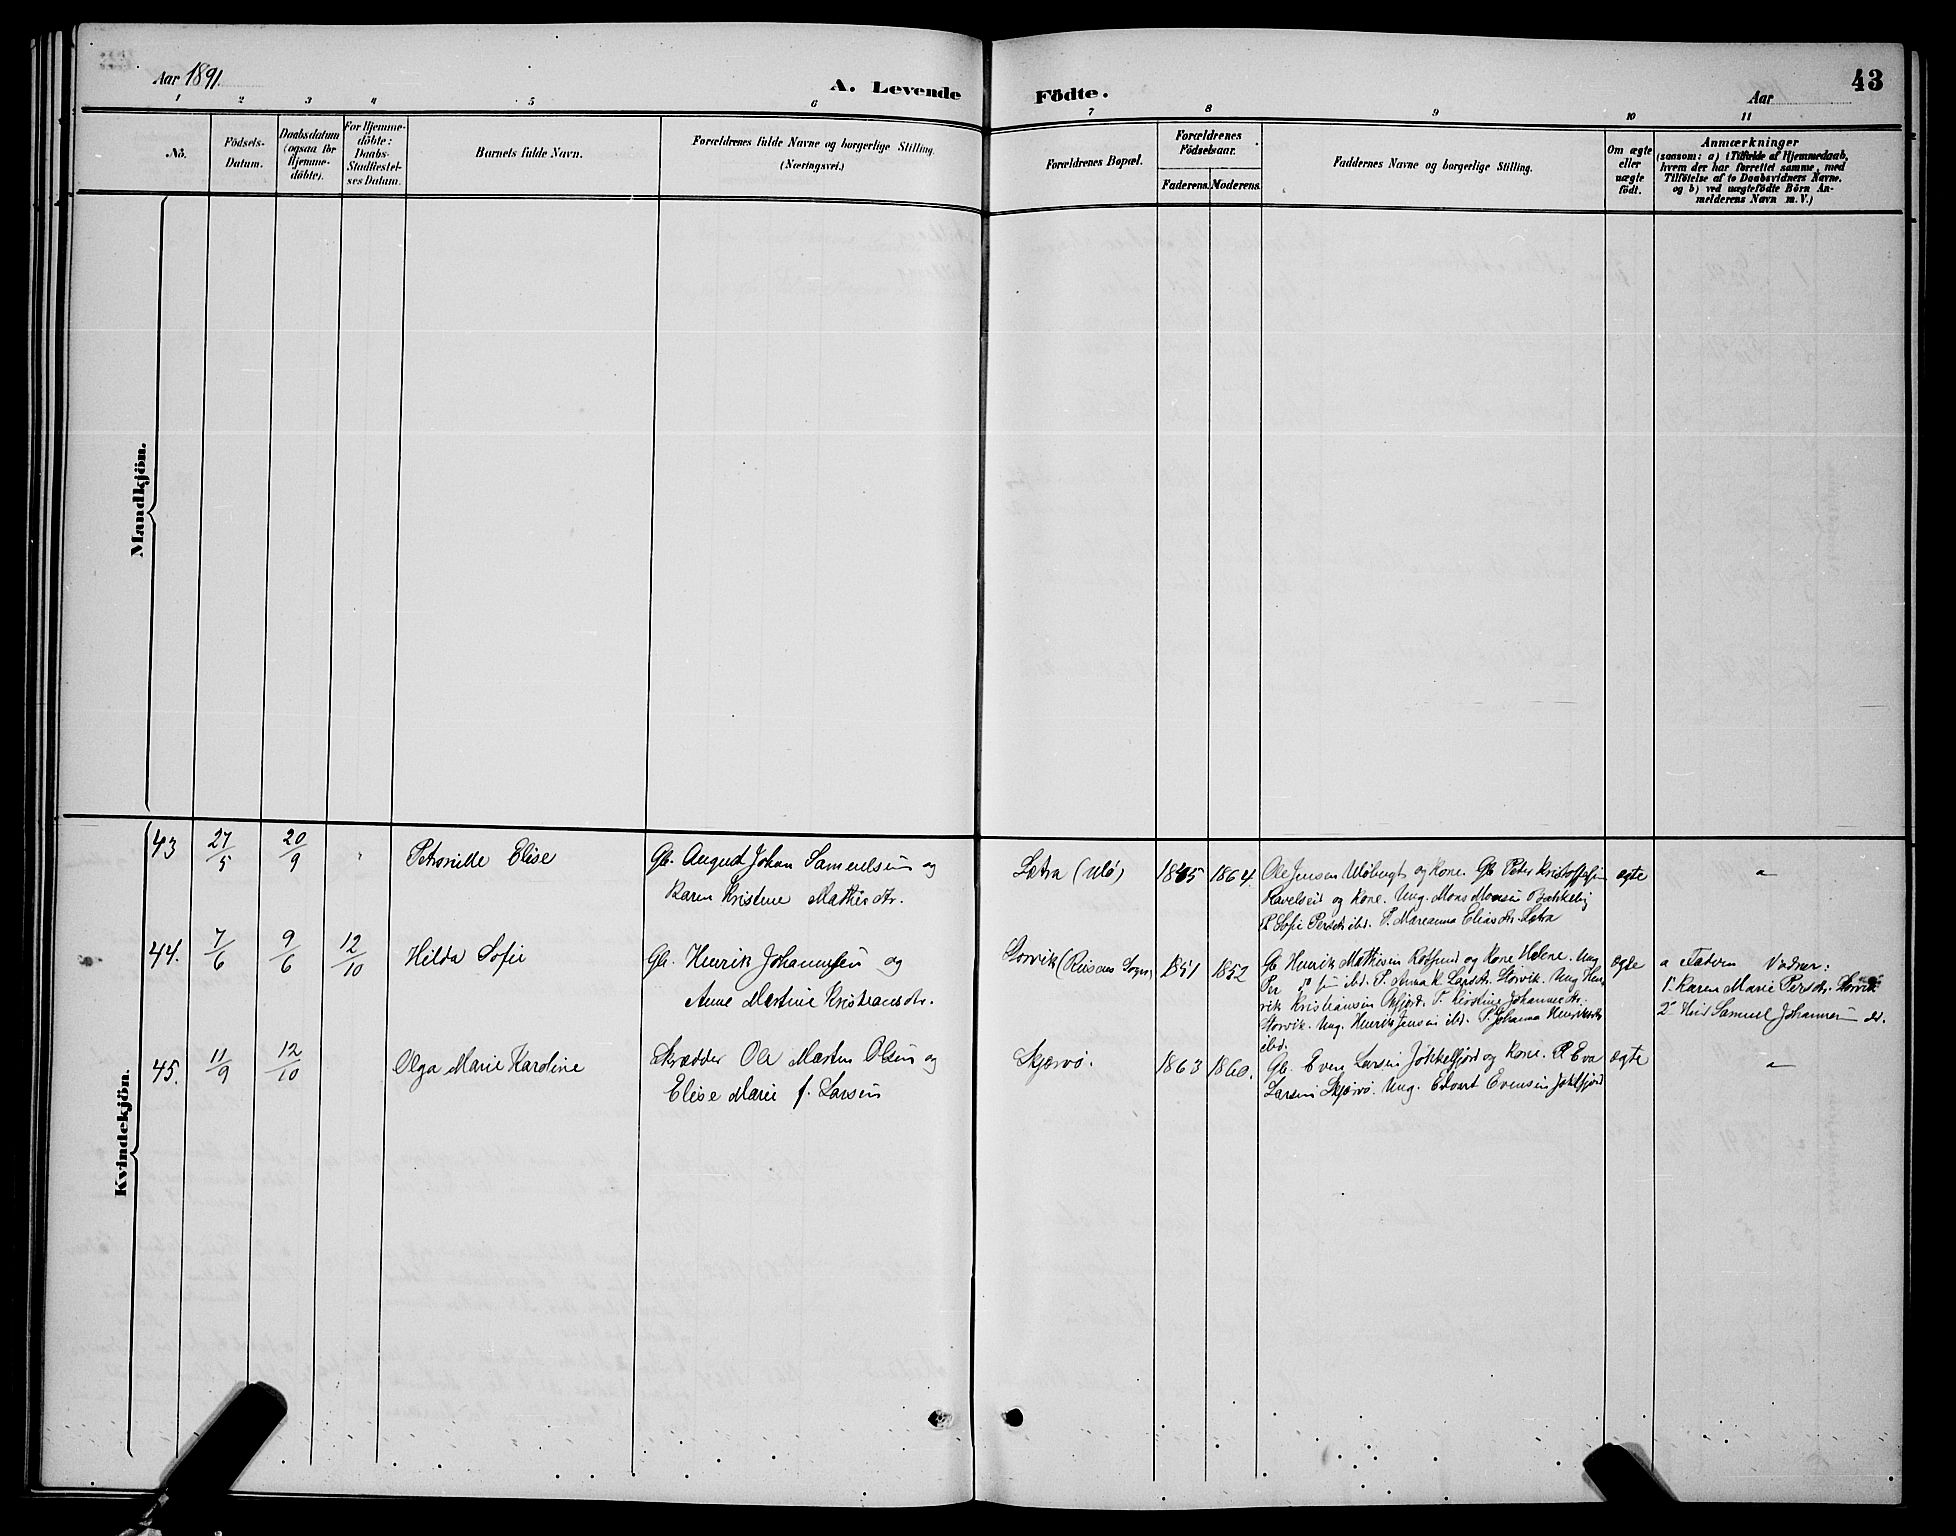 Aar 1891.
A. Levende Födte.
Aar
43
1 2 3 4 5 6 7 8 9 10 11
No.
Födsels-Datum.
Daabsdatum (ogsaa for Hjemme-döbte).
For Hjemme-döbte: Daabs-Stadfæstel-ses Datum.
Barnets fulde Navn.
Forældrenes fulde Navne og borgerlige Stilling.
(Næringsvei.)
Forældrenes Bopæl.
Forældrenes Födselsaar.
Faderens. Moderens.
Faddernes Navne og borgerlige Stilling.
Om ægte eller uægte födt.
Anmærkninger
(saasom: a) i Tilfælde af Hjemmedaab,
hvem der har forrettet samme, med
Tilföielse af to Daabsvidners Navne.
og b) ved uægtefödte Börn An-
melderens Navn m. V.)
Mandkjön.
Kvindekjön.
43 27/5 20/9 Petronille Elise Gb. August Johan Samuelsen og
Karen Kristine Mathisdtr.
Sætra (Ulö) 1865 1864. Ole Jensen og Kone. Gb Peter Kristoffersen ægte
Ravelseid og Kone. Ung. Mons Monsen
P. Sofie Persdtr ibd. P. Mareanna Eliasdtr. Sætra
44. 7/6 9/6 12/10 Hilda Sofie Gb. Henrik Johannesen og
Anne Martine Kristiansdtr.
Storvik (Reisens Sogn) 1851 1852 Gb Henrik Mathisen Rotsund og Kone Helene. Ung ægte
Per ibd. P. Anna K. Larsdtr. Storvik. Ung Hen-
rik Kristiansen P. Kirstine Johannesdtr.
Storvik. Ung. Henrik Jensen ibd. P. Johanna Henriksdtr
ibd.
a Faderen Vidner:
1º Karen Marie Persdtr. Storvik
2º Samuel Johannesen
45. 11/9 12/10 Olga Marie Kardine Skrædder Ole Martin Olsen og
Elise Marie f. Larsen
Skjervö. 1863 1860. Gb. Even Larsen Jökkelfjord og Kone. P. Eva ægte
Larsen Skjervö. Ung. Edvart Evensen Jökelfjord